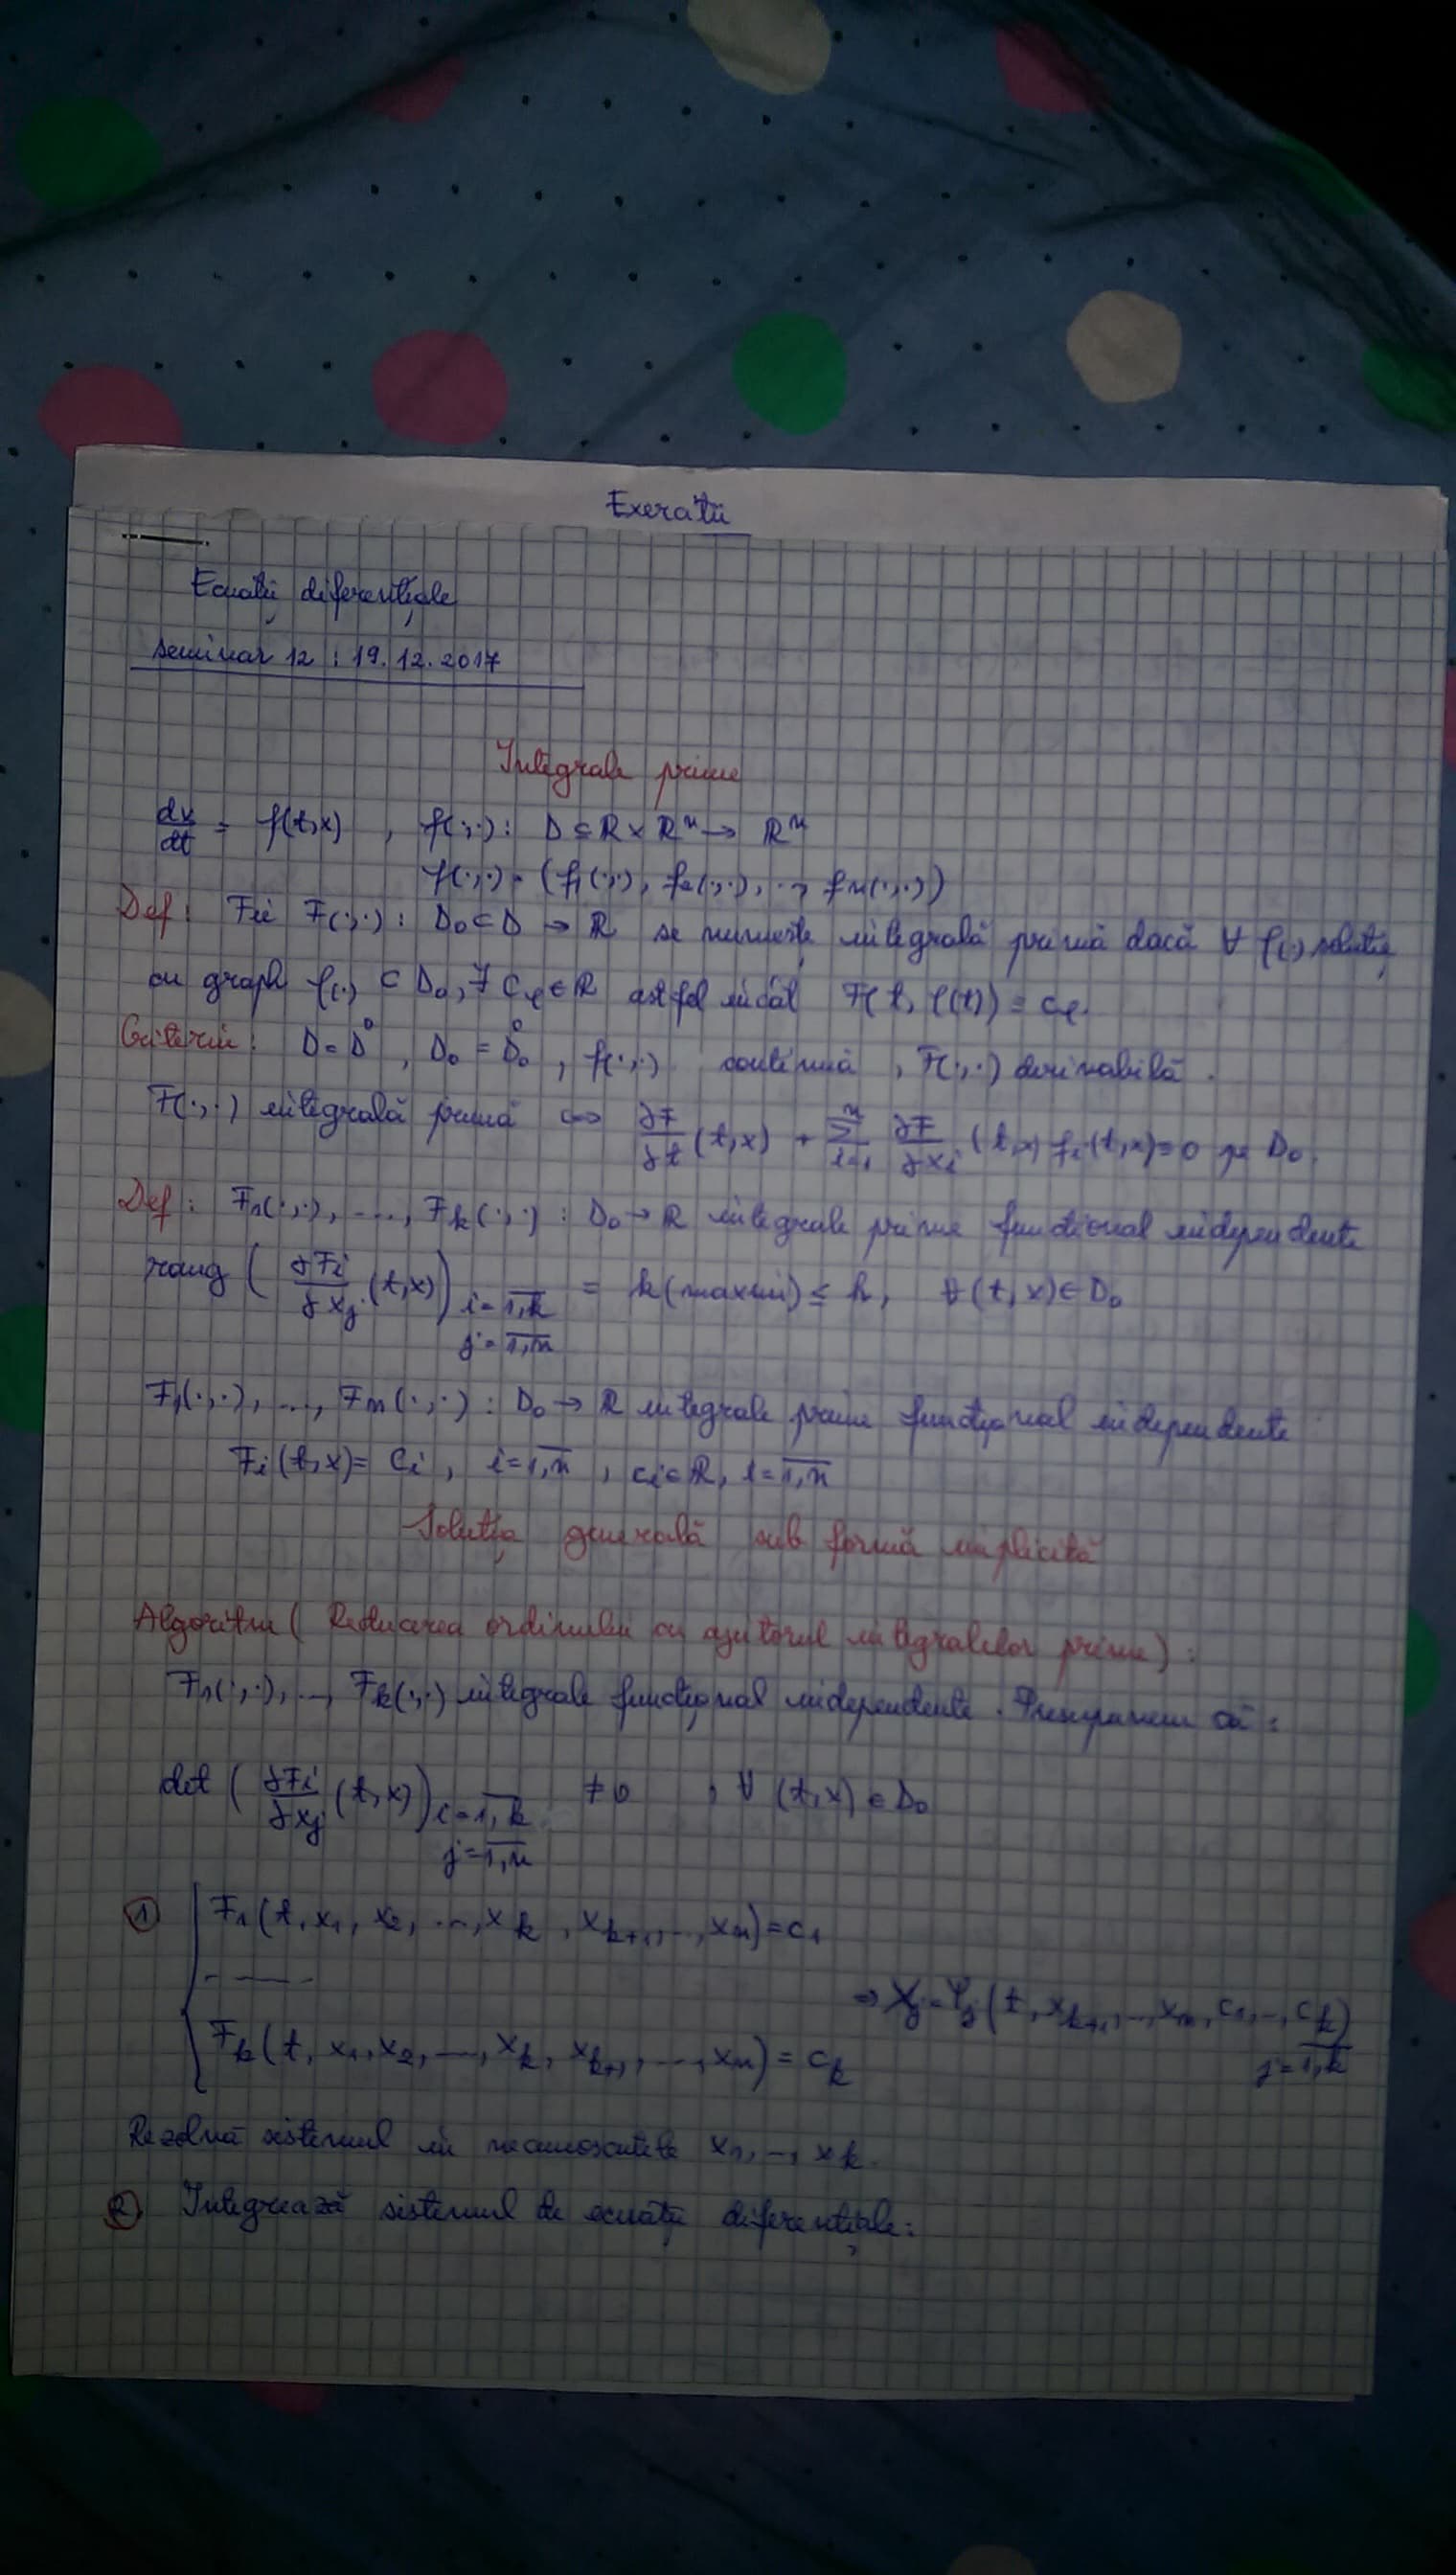 Exerciții
Ecuații diferențiale
seminar 12 : 19.12.2017
Integrale prime
dx/dt = f(t,x) , f(·,·) : D ⊆ R × Rⁿ → Rⁿ
f(·,·) = (f₁(·,·), f₂(·,·), .., fn(·,·))
Def: Fie F(·,·) : D₀ ⊂ D → R se numește integrală primă dacă ∀ φ(·) soluție
cu graph φ(·) ⊂ D₀, ∃ Cφ ∈ R astfel încât F(t, φ(t)) = cφ.
Criteriu: D = D̊ , D₀ = D̊₀ , f(·,·) continuă , F(·,·) derivabilă .
F(·,·) integrală primă ⇔ ∂F/∂t (t,x) + Σⁿᵢ₌₁ ∂F/∂xᵢ (t,x) fᵢ(t,x) = 0 pe D₀.
Def: F₁(·,·), ..., Fk(·,·) : D₀ → R integrale prime funcțional independente
rang ( ∂Fi/∂xj (t,x) ) i=1,k = k (maxim) ≤ n, ∀ (t,x) ∈ D₀
j=1,n
F₁(·,·), ..., Fn(·,·) : D₀ → R integrale prime funcțional independente
Fi(t,x) = ci , i=1,n , ci ∈ R, i=1,n
Soluția generală sub formă implicită
Algoritm (Reducerea ordinului cu ajutorul integralelor prime) :
F₁(·,·), .., Fk(·,·) integrale funcțional independente. Presupunem că :
det ( ∂Fi/∂xj (t,x) ) i=1,k ≠ 0 , ∀ (t,x) ∈ D₀
j=1,n
① { F₁(t, x₁, x₂, ..., xk, xk+1, .., xn) = c₁
- - - - -
⇒ xj = φj (t, xk+1, .., xn, c₁, .., ck)
Fk(t, x₁, x₂, ..., xk, xk+1, ..., xn) = ck
j=1,k
Rezolvă sistemul în necunoscutele x₁, .., xk.
② Integrează sistemul de ecuații diferențiale: